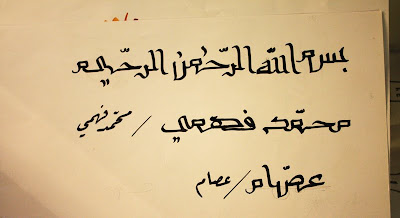 بسم الله الرحمٰن الرحيم
محمّد فهمي / محمّد فهمي
عصّام / عصام